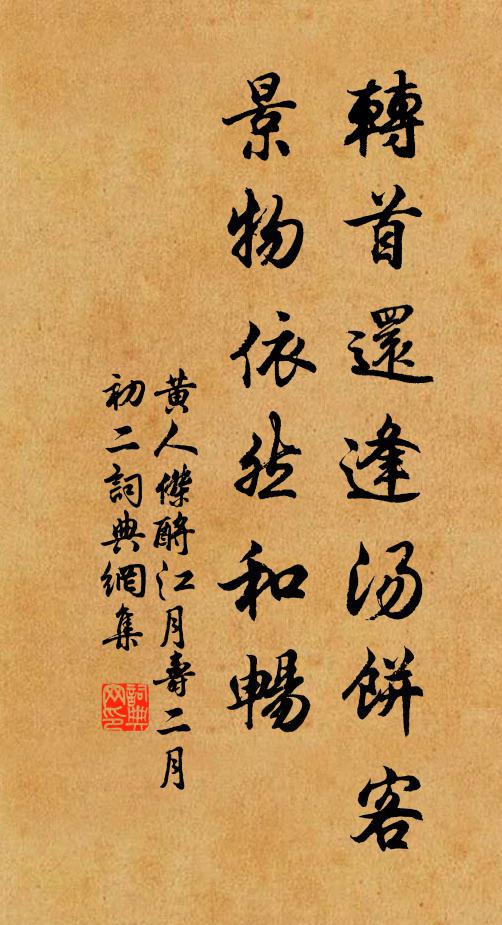 轉首還逢湯餅客
景物依然和暢
黃人傑酹江月壽二月
初二詞典網集
詞典
网印